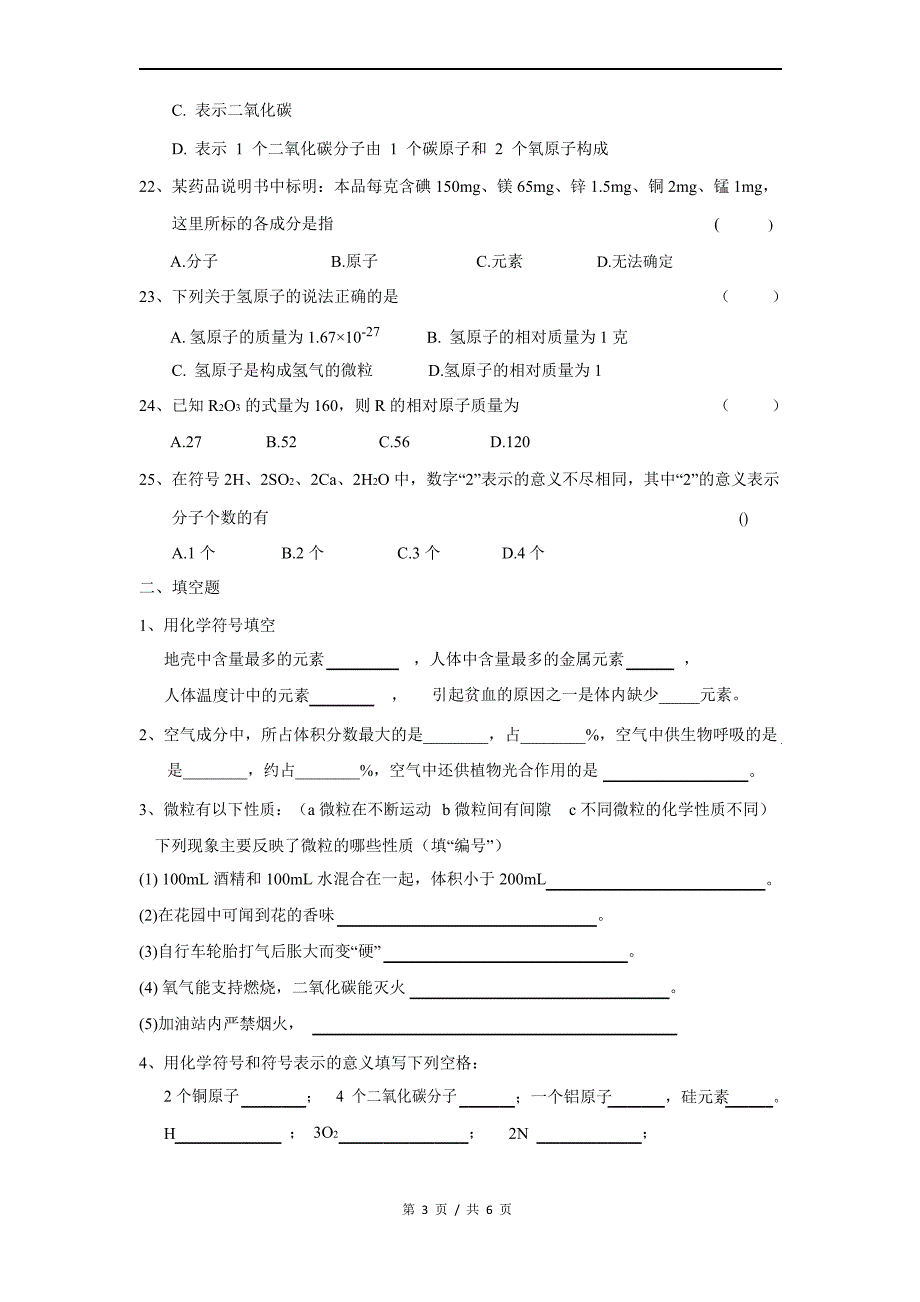 C. 表示二氧化碳
D. 表示 1 个二氧化碳分子由 1 个碳原子和 2 个氧原子构成
22、某药品说明书中标明：本品每克含碘 150mg、镁 65mg、锌 1.5mg、铜 2mg、锰 1mg，
这里所标的各成分是指 ( )
A.分子 B.原子 C.元素 D.无法确定
23、下列关于氢原子的说法正确的是 （ ）
A. 氢原子的质量为 1.67×10-27 B. 氢原子的相对质量为 1 克
C. 氢原子是构成氢气的微粒 D.氢原子的相对质量为 1
24、已知 R2O3 的式量为 160，则 R 的相对原子质量为 （ ）
A.27 B.52 C.56 D.120
25、在符号 2H、2SO2、2Ca、2H2O 中，数字“2”表示的意义不尽相同，其中“2”的意义表示
分子个数的有 ()
A.1 个 B.2 个 C.3 个 D.4 个
二、填空题
1、用化学符号填空
地壳中含量最多的元素_________ ，人体中含量最多的金属元素______ ，
人体温度计中的元素________ ， 引起贫血的原因之一是体内缺少_____元素。
2、空气成分中，所占体积分数最大的是________，占________%，空气中供生物呼吸的是
是________，约占________%，空气中还供植物光合作用的是 __________________。
3、微粒有以下性质：（a 微粒在不断运动 b 微粒间有间隙 c 不同微粒的化学性质不同）
下列现象主要反映了微粒的哪些性质（填“编号”）
(1) 100mL 酒精和 100mL 水混合在一起，体积小于 200mL___________________________。
(2)在花园中可闻到花的香味________________________________。
(3)自行车轮胎打气后胀大而变“硬”______________________________。
(4) 氧气能支持燃烧，二氧化碳能灭火 ________________________________。
(5)加油站内严禁烟火， _____________________________________________
4、用化学符号和符号表示的意义填写下列空格：
2 个铜原子________； 4 个二氧化碳分子_______；一个铝原子_______，硅元素______。
H_____________ ； 3O2________________； 2N _____________；
第 3 页 / 共 6 页